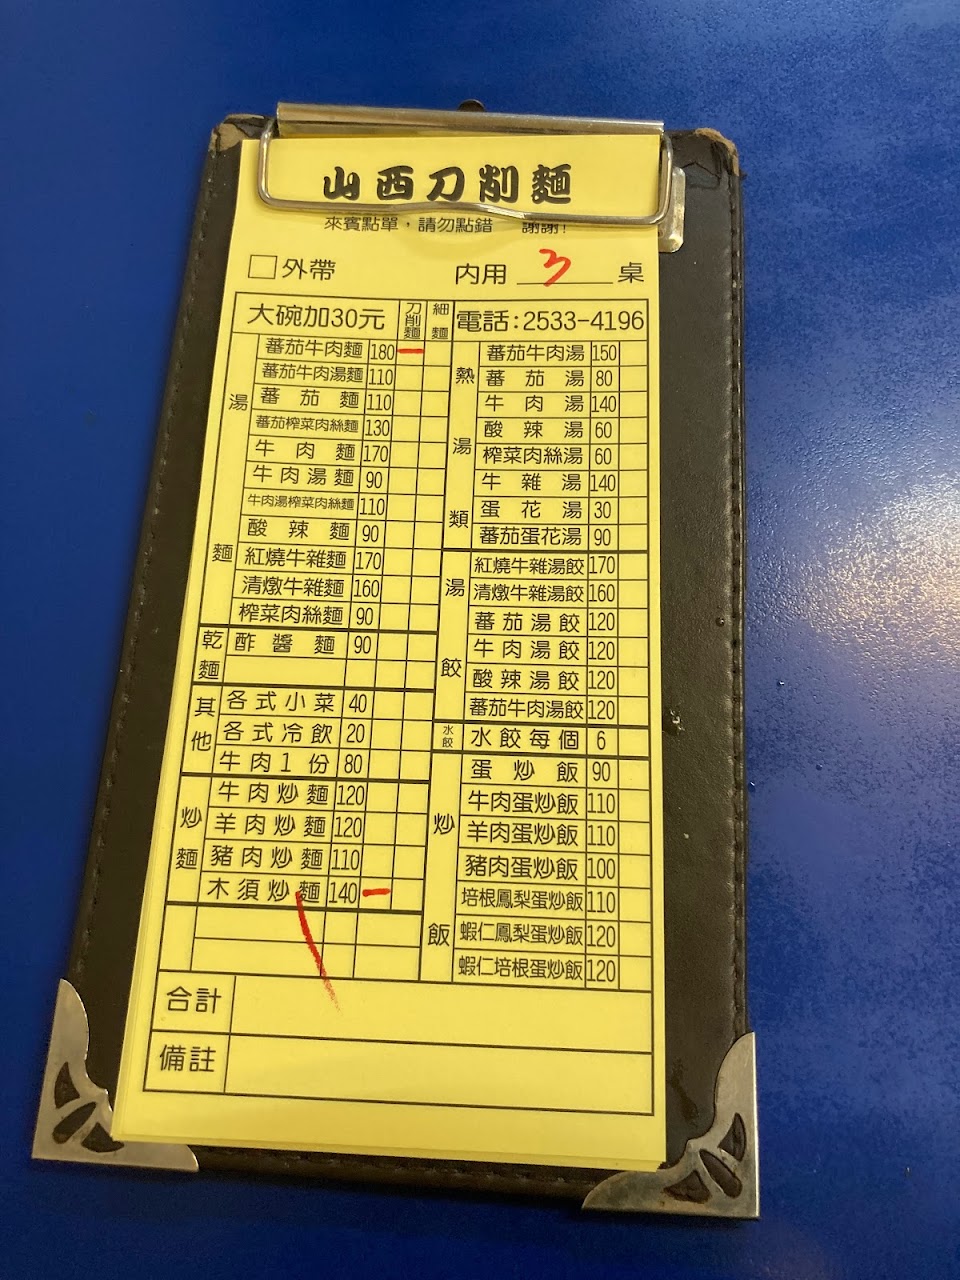 山西刀削麵
來賓點單，請勿點錯 謝謝!
□外帶 內用 3 桌
大碗加30元 刀削麵 細麵 電話:2533-4196
湯麵
蕃茄牛肉麵 180 一
蕃茄牛肉湯麵 110
蕃茄麵 110
蕃茄榨菜肉絲麵 130
牛肉麵 170
牛肉湯麵 90
牛肉湯榨菜肉絲麵 110
酸辣麵 90
紅燒牛雜麵 170
清燉牛雜麵 160
榨菜肉絲麵 90
乾麵
酢醬麵 90
其他
各式小菜 40
各式冷飲 20
牛肉1份 80
炒麵
牛肉炒麵 120
羊肉炒麵 120
豬肉炒麵 110
木須炒麵 140 一
熱湯類
蕃茄牛肉湯 150
蕃茄湯 80
牛肉湯 140
酸辣湯 60
榨菜肉絲湯 60
牛雜湯 140
蛋花湯 30
蕃茄蛋花湯 90
湯餃
紅燒牛雜湯餃 170
清燉牛雜湯餃 160
蕃茄湯餃 120
牛肉湯餃 120
酸辣湯餃 120
蕃茄牛肉湯餃 120
水餃
水餃每個 6
炒飯
蛋炒飯 90
牛肉蛋炒飯 110
羊肉蛋炒飯 110
豬肉蛋炒飯 100
培根鳳梨蛋炒飯 110
蝦仁鳳梨蛋炒飯 120
蝦仁培根蛋炒飯 120
合計
備註